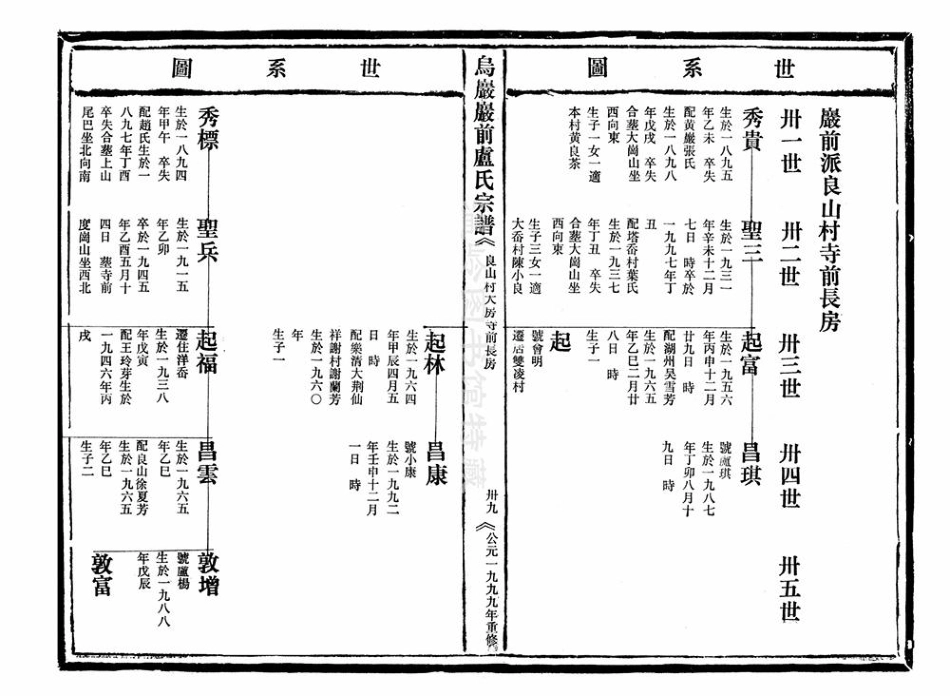 世系圖
巖前派良山村寺前長房
卅一世
卅二世
卅三世
卅四世
卅五世
秀貴
生於一八九五
年乙未 卒失
配黃巖張氏
生於一八九八
年戊戌 卒失
合墓大崗山坐
西向東
生子一女一適
本村黃良茶
聖三
生於一九三一
年辛未十二月
七日 時卒於
一九九七年丁
丑
配塔岙村葉氏
生於一九三七
年丁丑 卒失
合墓大崗山坐
西向東
生子三女一適
大岙村陳小良
起富
生於一九五六
年丙申十二月
廿九日 時
配湖州吴雪芳
生於一九六五
年乙巳二月廿
八日 時
生子一
起
號曾明
遷居雙凌村
昌琪
號
琪
生於一九八七
年丁卯八月十
九日 時
烏巖巖前盧氏宗譜
《良山村大房寺前長房
卅九
《公元一九九九年重修
世系圖
起林
生於一九六四
年甲辰四月五
日 時
配樂清大荆仙
祥謝村謝蘭芳
生於一九六〇
年
生子一
昌康
號小康
生於一九九二
年壬申十二月
一日 時
秀標
生於一八九四
年甲午 卒失
配趙氏生於一
八九七年丁酉
卒失合墓上山
尾巴坐北向南
聖兵
生於一九一五
年乙卯
卒於一九四五
年乙酉五月十
四日 墓寺前
度崗山坐西北
起福
遷住洋岙
生於一九三八
年戊寅
配王玲芽生於
一九四六年丙
戌
昌雲
生於一九六五
年乙巳
配良山徐夏芳
生於一九六五
年乙巳
生子二
敦增
號盧楊
生於一九八八
年戊辰
敦富